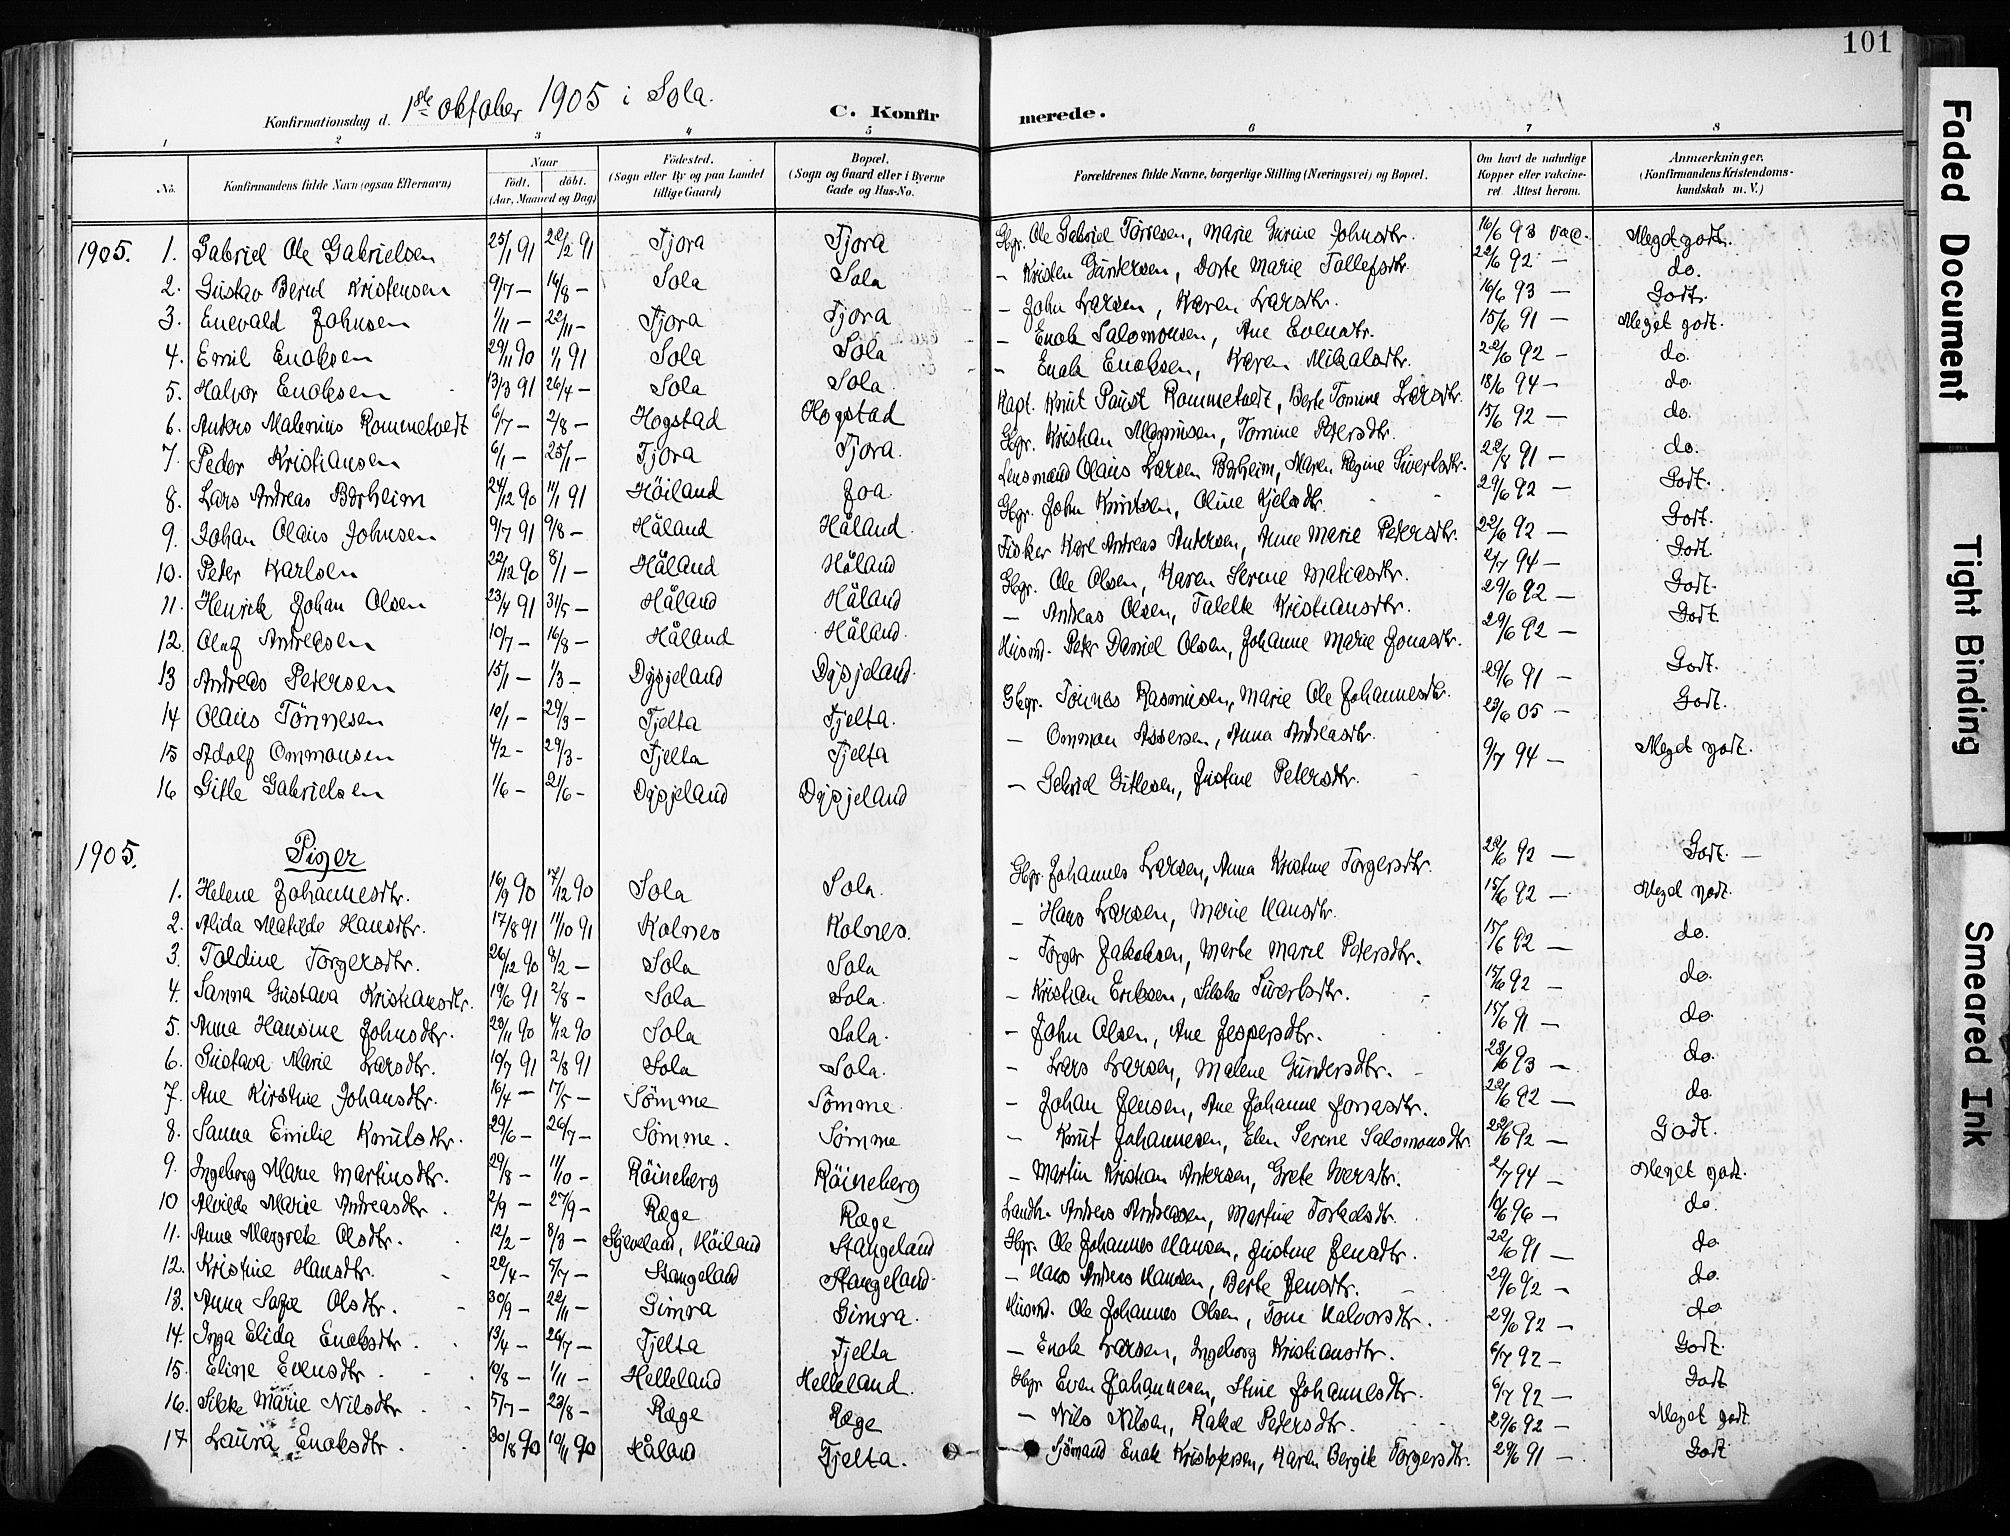 101
Konfirmationsdag d. 1ste oktober 1905 i Sola.
C. Konfirmerede.
1 2 3 4 5 6 7 8
No. | Konfirmandens fulde Navn (ogsaa Efternavn) | Naar født. døbt. (Aar, Maaned og Dag) | Fødested. (Sogn eller By og paa Landet tillige Gaard) | Bopæl. (Sogn og Gaard eller i Byerne Gade og Hus-No. | Forældrenes fulde Navne, borgerlige Stilling (Næringsvei) og Bopæl. | Om havt de naturlige Kopper eller vakcineret. Attest herom. | Anmærkninger. (Konfirmandens Kristendomskundskab m. V.)
1905. 1. Gabriel Ole Gabrielsen 25/1 91 22/2 91 Tjora Tjora Gbgr. Ole Gabriel Tørresen, Marie Gurine Johnsdtr. 16/6 93 vac. Meget godt.
2. Gustav Bernt Kristensen 9/7 — 16/8 — Sola Sola — Kristen Guntersen, Dorte Marie Tollefsdtr. 22/6 92 — do.
3. Enevald Johnsen 1/11 — 22/11 — Tjora Tjora — John Larsen, Karen Larsdtr. 16/6 93 — Godt.
4. Emil Enoksen 29/11 90 1/1 91 Sola Sola — Enok Salomonsen, Ane Evensdtr. 15/6 91 — Meget godt.
5. Halvor Enoksen 13/3 91 26/4 — Sola Sola. — Enok Enoksen, Karen Mikalsdtr. 22/6 92 — do.
6. Anders Malenius Rommetvedt 6/7 — 2/8 — Hogstad Hogstad Kapt. Knut Paust Rommetvedt, Berte Tomine Larsdtr. 18/6 94 — do.
7. Peder Kristiansen 6/1 — 25/1 — Tjora Tjora. Gbgr. Kristian Magnusen, Tomine Petersdtr. 15/6 92 — do.
8. Lars Andreas Borheim 24/12 90 11/1 91 Höiland Joa Lensmand Olaus Larsen Borheim, Maren Regine Sivertsdtr. 22/8 91 — do.
9. Johan Olaus Johnsen 9/7 91 9/8 — Håland Håland. Gbgr. John Knutsen, Oline Kjelsdtr. 29/6 92 — Godt.
10. Peter Karlsen 22/12 90 8/1 — Håland Håland Fisker Karl Andreas Andersen, Anne Marie Petersdtr. 22/6 92 — Godt.
11. Henrik Johan Olsen 23/4 91 31/5 — Håland Håland Gbgr. Ole Olsen, Karen Serine Matiasdtr. 2/7 94 — Godt.
12. Olaf Andreasen 10/7 — 16/8 — Håland Håland. — Andreas Olsen, Talette Kristiansdtr. 29/6 92 — Godt.
13 Andreas Petersen 15/1 — 1/3 — Dysjeland Dysjeland. Husmd. Peter Daniel Olsen, Johanne Marie Jonasdtr. 29/6 92 — Godt
14 Olaus Tönnesen 10/1 — 29/3 — Tjelta Tjelta. Gbgr. Tönnes Rasmusen, Marie Ole Johannesdtr. 29/6 91 — Godt.
15 Adolf Ommonsen 4/2 — 29/3 — Tjelta Tjelta — Ommon Assersen, Anna Andreasdtr. 23/6 05 — Godt.
16 Gitle Gabrielsen 1/6 — 21/6 — Dysjeland Dysjeland — Gabriel Gitlesen, Justine Petersdtr. 9/7 94 — Meget godt.
1905. Piger
1. Helene Johannesdtr. 16/9 90 7/12 90 Sola Sola. Gbgr. Johannes Larsen, Anna Kristine Torgersdtr. 22/6 92 — Godt. —
2. Alida Matilde Hansdtr. 17/8 91 11/10 91 Kolnes Kolnes. — Hans Larsen, Marie Hansdtr. 15/6 92 — Meget godt.
3. Toldine Torgersdtr. 26/12 90 8/2 — Sola Sola — Torger Jakobsen, Marte Marie Petersdtr. 15/6 92 — do.
4. Sanna Gustava Kristiansdtr. 19/6 91 2/8 — Sola Sola. — Kristian Eriksen, Silske Sivertsdtr. 15/6 92 — do.
5. Anna Hansine Johnsdtr. 23/11 90 4/12 90 Sola Sola. — John Olsen, Ane Jespersdtr. 15/6 91 — do.
6. Gustava Marie Larsdtr. 10/7 91 2/8 91 Sola Sola. — Lars Larsen, Malene Gundersdtr. 23/6 93 — do.
7. Ane Kirstine Johansdtr. 16/4 — 17/5 — Sömme Sömme. — Johan Jensen, Ane Johanne Jonasdtr. 22/6 92 — do.
8. Sanna Emilie Knutsdtr. 29/6 — 26/7 — Sömme. Sömme — Knut Johannesen, Elen Serene Salomonsdtr. 22/6 92 — Godt.
9. Ingeborg Marie Martinsdtr. 29/8 — 11/10 — Röineberg Röineberg — Martin Kristian Andersen, Grete Iversdtr. 2/7 94 — Meget godt.
10 Alvilde Marie Andreasdtr. 2/9 — 27/9 — Ræge Ræge Landh. Andreas Andreasen, Martine Torkelsdtr. 10/6 96 — do.
11. Anna Margrete Olsdtr. 12/2 — 8/3 — Stjeveland, Höiland Stangeland Gbgr. Ole Johannes Hansen, Justine Jensdtr. 22/6 91 — do
12. Kristine Hansdtr. 22/4 — 5/7 — Stangeland Stangeland. — Hans Andreas Hansen, Berte Jensdtr. 29/6 92 — do.
13. Anna Sofie Olsdtr. 30/9 — 22/11 — Gimra Gimra. Husmd. Ole Johannes Olsen, Tone Halvorsdtr. 29/6 92 — do
14. Inga Elida Enoksdtr. 13/4 — 26/7 — Tjelta Tjelta — Enok Larsen, Ingeborg Kristiansdtr. 6/7 92 — Godt.
15. Eline Evensdtr. 10/8 — 1/11 — Helleland Helleland. Gbgr Even Johannesen, Stine Johannesdtr. 6/7 92 — Godt
16. Silke Marie Nilsdtr. 5/7 — 23/8 — Ræge Ræge — Nils Nilsen, Rakel Petersdtr. 29/6 92 — Meget godt.
17 Laura Enoksdtr. 30/8 90 10/11 90 Håland Tjelta. Sjömand Enok Kristofersen, Karen Bergite Torgersdtr. 29/6 91 — Godt
Faded Document
Tight Binding
Smeared Ink